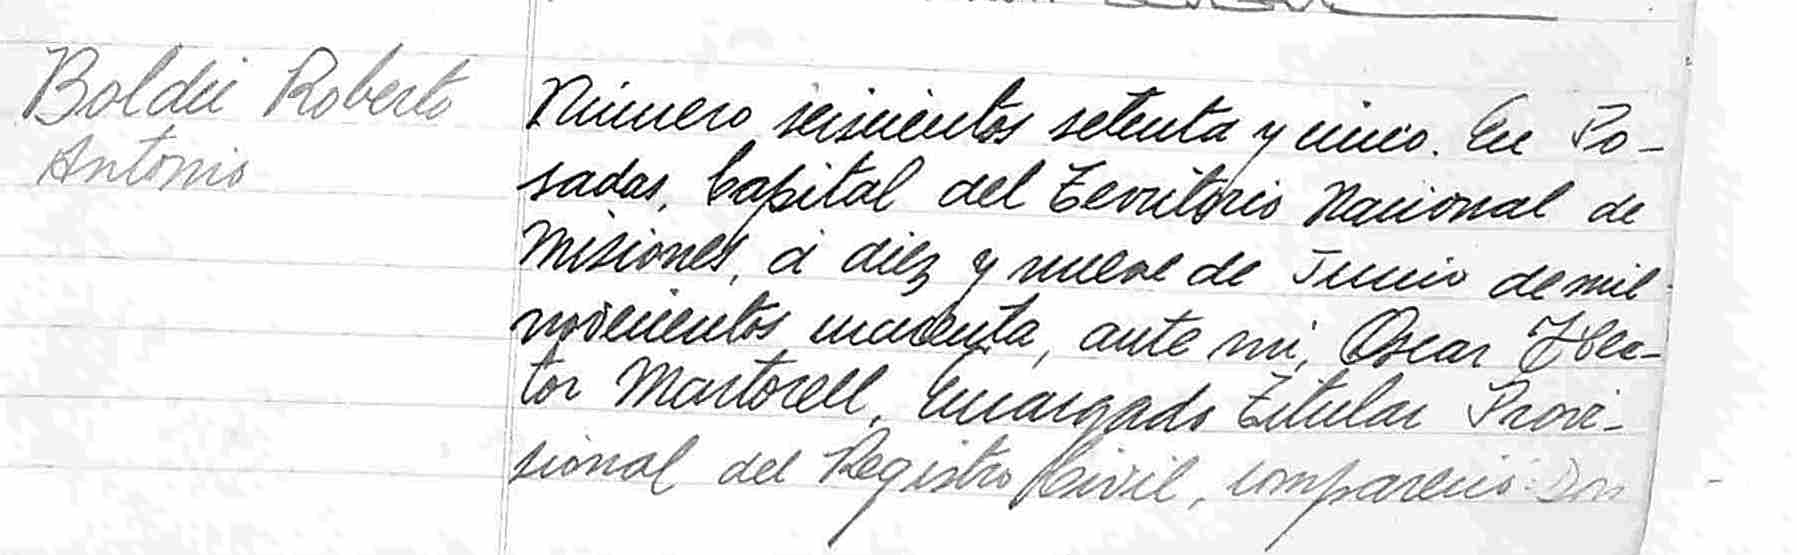 Boldú Roberto
Antonio
Número seiscientos setenta y cinco. En Po-
sadas, Capital del Territorio Nacional de
Misiones, á diez y nueve de Junio de mil
novecientos cuarenta, ante mi, Oscar Hec-
tor Martorell, Encargado Titular Provi-
sional del Registro Civil, compareció Don